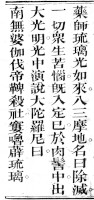 藥師琉璃光如來入三摩地名曰除滅
一切衆生苦惱既入定已於肉髻中出
大光明光中演說大陀羅尼曰
南無婆伽伐帝鞞殺社窶嚕薜琉璃